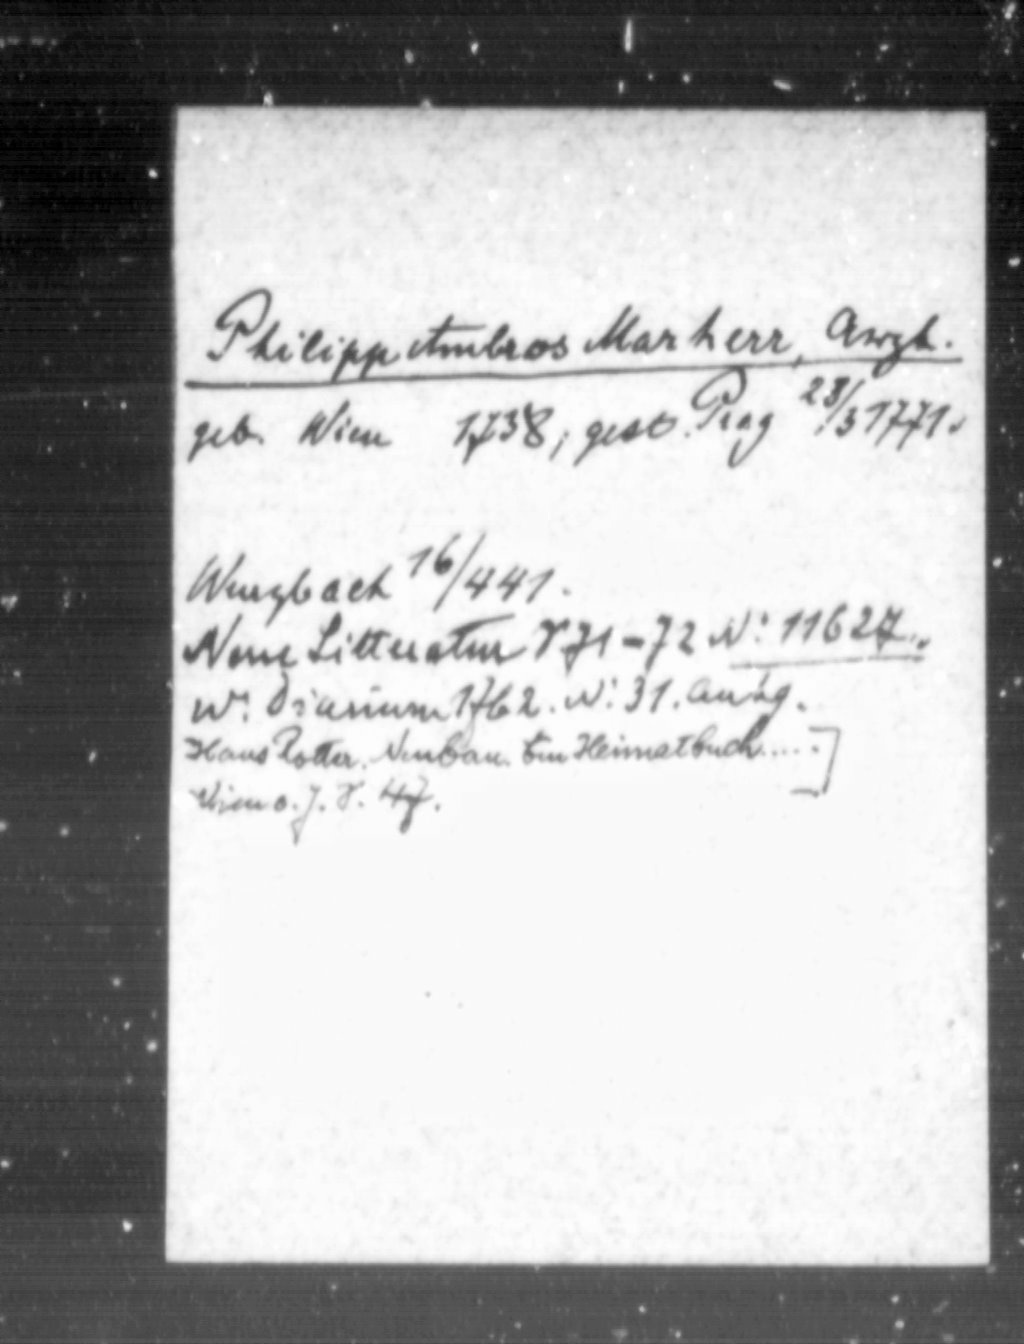 Philipp Ambros Marherr,
geb. Wien 1738, gest. Prag 28/3 1771.
Wurzbach 16/441.
Neue Litteratur S 71-72 N: 11627.
W. Diarium 1762. N: 31. Anhg.
Hans Rotter. Neubau. Ein Heimatbuch..... ]
Wien o. J. S. 47.